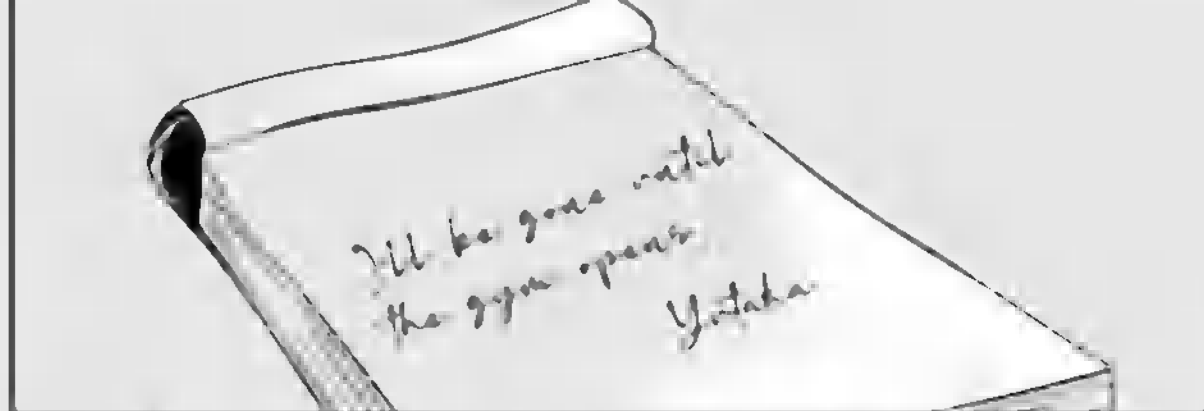 I'll be gone until
the gym opens
Yutaka